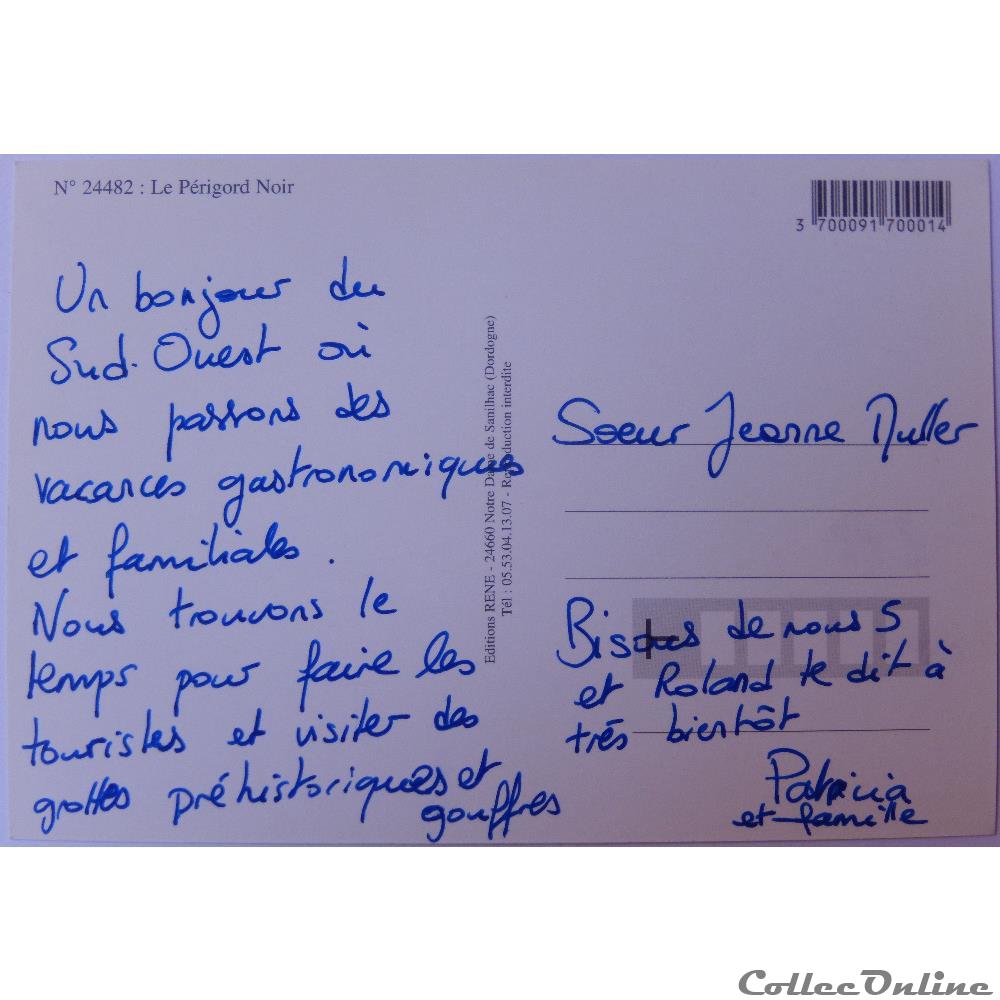 N° 24482 : Le Périgord Noir
3 700091 700014
Un bonjour du
Sud-Ouest où
nous passons des
vacances gastronomiques
et familiales.
Nous trouvons le
temps pour faire les
touristes et visiter des
grottes préhistoriques et
gouffres
Editions RENE - 24660 Notre Dame de Sanilhac (Dordogne)
Tél : 05.53.04.13.07 - Reproduction interdite
Soeur Jeanne Muller
Bisous de nous 5
et Roland te dit à
très bientôt
Patricia
et famille
CollecOnline